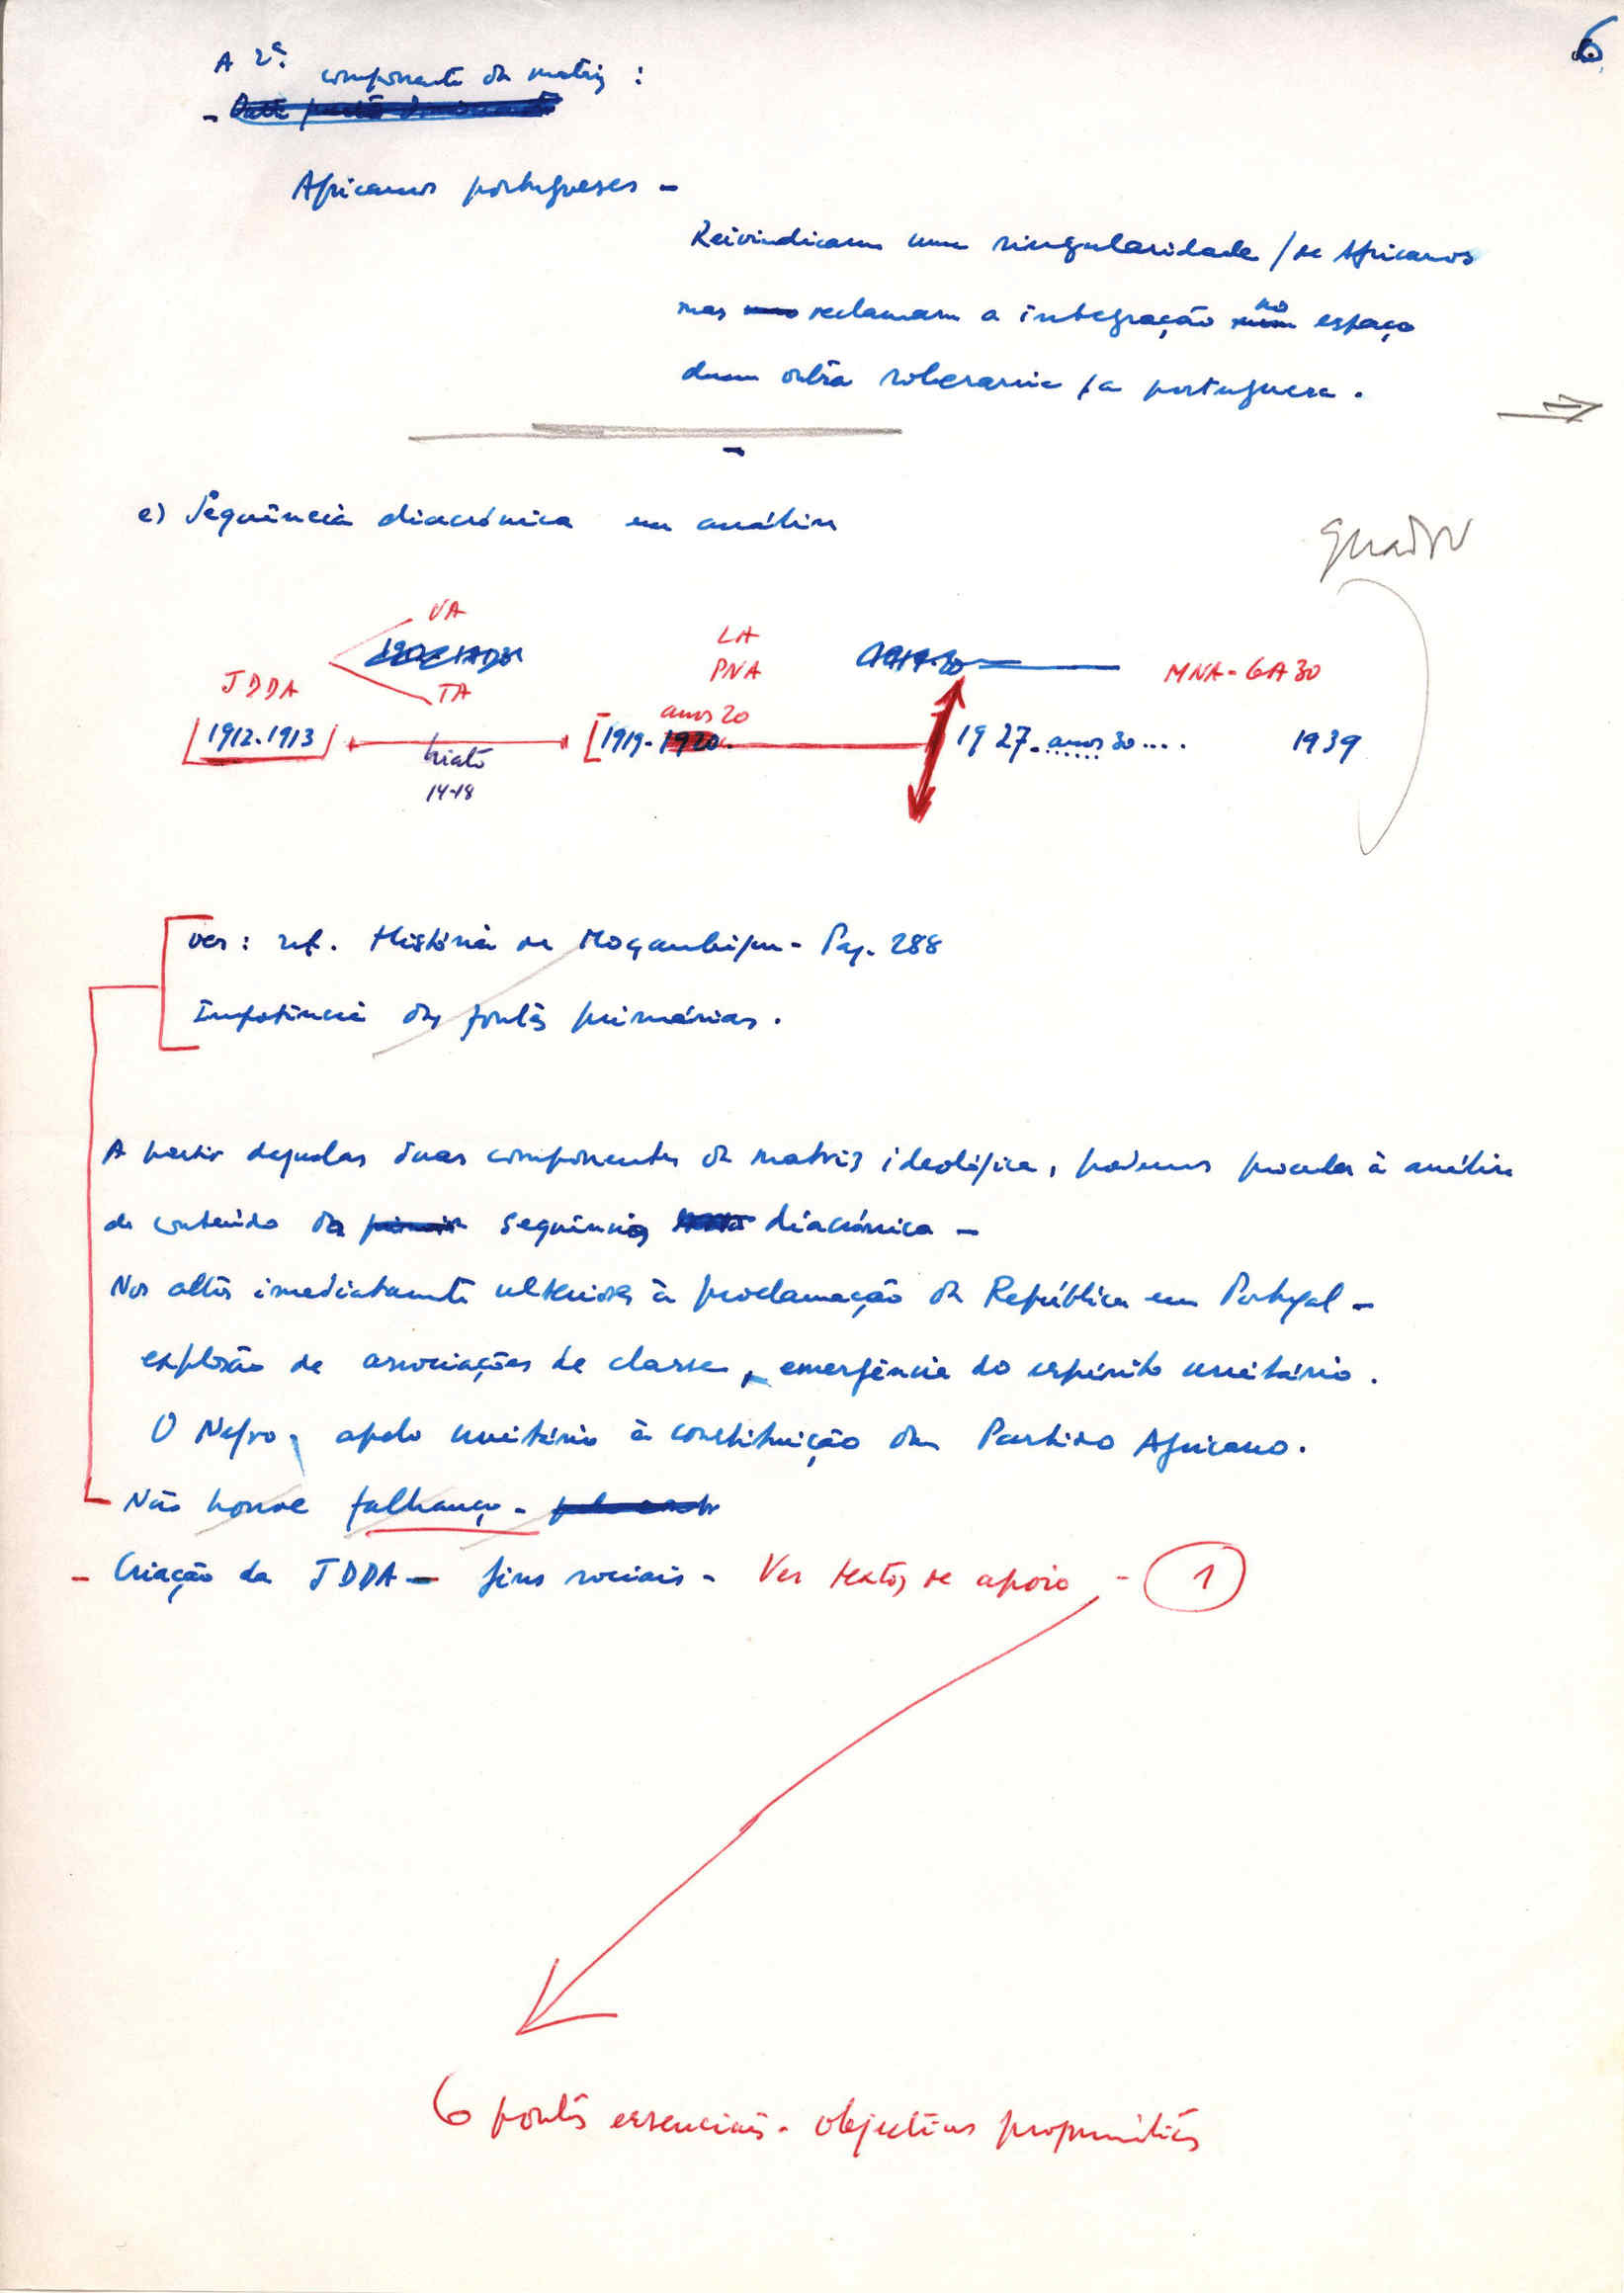 6
A 2ª componente da matriz :
-
Africanos portugueses -
Reivindicam uma singularidade / de Africanos
mas reclamam a integração no espaço
duma outra soberania / a portuguesa .
e) Sequência diacrónica em análise
quadro
VA
LA
JDDA
TA
PNA
MNA - GA 30
anos 20
[1912-1913] [1919-1920. 1927. anos 30 .... 1939
hiato
14-18
ver : ref. História de Moçambique - Pag. 288
Importância das fontes primárias .
A partir daquelas duas componentes da matriz ideológica , podemos proceder à análise
de conteúdo da sequência diacrónica -
Nos imediatamente ulteriores à proclamação da República em Portugal -
explosão de associações de classe , emergência do espírito unitário .
O Negro , apelo unitário à constituição dum Partido Africano .
Não houve falhanço -
- Criação da JDDA - fins sociais - Ver textos de apoio - 1
6 pontos essenciais - objectivos